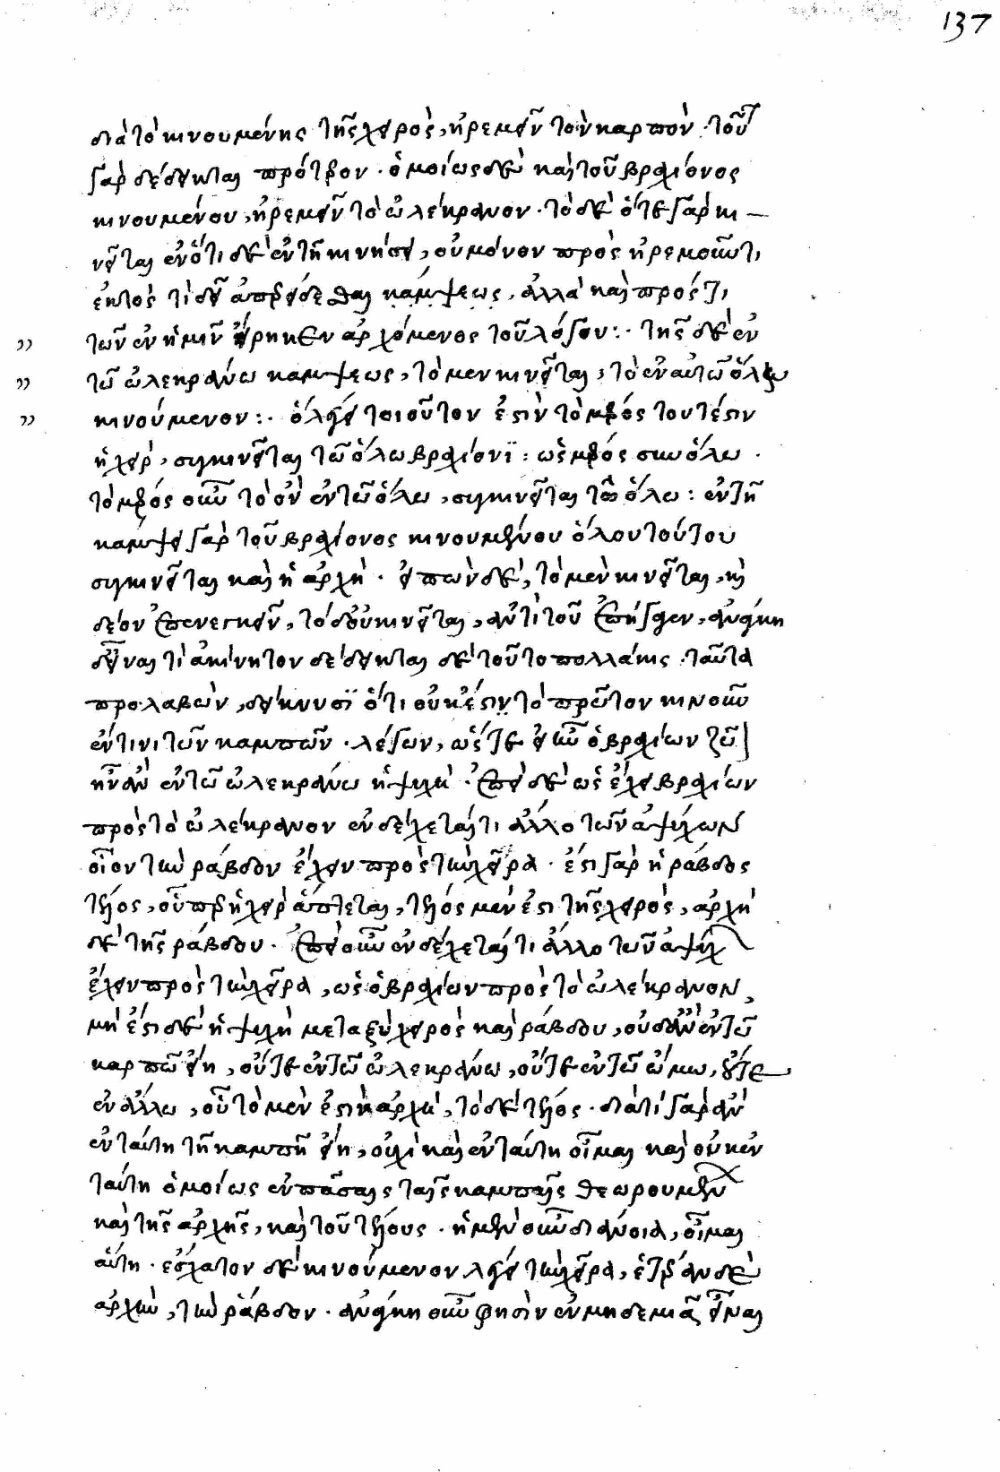 137
διὰ τὸ κινουμένης τῆς χειρὸς, ἠρεμεῖν τὸν καρπὸν. τοῦτο
γὰρ δέδεικται πρότερον. ὁμοίως δὲ καὶ τοῦ βραχίονος
κινουμένου, ἠρεμεῖν τὸ ὠλέκρανον. τὸ δὲ ὅτε γὰρ κι
νεῖται ἐν ὅτι δὲ ἐν τῇ κινήσει, οὐ μόνον πρὸς ἠρεμοῦν τι
ἐκτὸς τι δεῖ ἀπερείδεσθαι κάμψεως, ἀλλὰ καὶ πρός τι
τῶν ἐν ἡμῖν εἴρηκεν ἀρχόμενος τοῦ λόγου :· τῆς δὲ ἐν
" τῶ ὠλεκράνω κάμψεως, τὸ μὲν κινεῖται, τὸ ἐν αὐτῶ ὅλω
" κινούμενον :· ὅλέγει τοιοῦτον ἐστὶν τὸ μέρος τουτέστιν
" ἡ χεὶρ, συγκινεῖται τῶ ὅλω βραχίονϊ : ὡς μέρος σὺν ὅλω ·
τὸ μέρος οὖν τὸ ὂν ἐν τῶ ὅλω, συγκινεῖται τῶ ὅλω : ἐν τῇ
κάμψει γὰρ τοῦ βραχίονος κινουμένου ὅλου τούτου
συγκινεῖται καὶ ἡ ἀρχὴ · εἰπὼν δὲ, τὸ μὲν κινεῖται, καὶ
δέον ἐπενεγκεῖν, τὸ δ' οὐ κινεῖται, ἀντὶ τοῦ ἐπήγαγεν, ἀνάγκη
δ' εἶναι τὶ ἀκίνητον δέδεικται δὲ τοῦτο πολλάκις. ταῦτα
προλαβὼν, δείκνυσϊ ὅτι οὐκ ἔστιν τὸ πρῶτον κινοῦν
ἐν τινι τῶν καμπῶν. λέγων, ὡς εἴτε εἰ ἦν ὁ βραχίων ζῶον
ἦν ἂν ἐν τῶ ὠλεκράνω ἡ ψυχὴ. ἐπεὶ δὲ ὡς ἔχει βραχίων
πρὸς τὸ ὠλέκρανον ἐνδέχεταί τι ἄλλο τῶν ἀψύχων
οἷον τὴν ράβδον ἔχειν πρὸς τὴν χεῖρα. ἔστι γὰρ ἡ ράβδος
τέλος, οὗπερ ἡ χεὶρ ἅπτεται, τέλος μὲν ἔστι τῆς χειρὸς, ἀρχὴ
δὲ τῆς ράβδου. ἐπεὶ οὖν ἐνδέχεταί τι ἄλλο τῶν ἀψύχ
ἔχειν πρὸς τὴν χεῖρα, ὡς ὁ βραχίων πρὸς τὸ ὠλέκρανον,
μὴ ἔστι δὲ ἡ ψυχὴ μεταξὺ χειρὸς καὶ ράβδου, οὐδ' ἂν ἐν τῶ
καρπῶ εἴη, οὔτε ἐν τῶ ὠλεκράνω, οὔτε ἐν τῶ ὤμω, οὔτε
ἐν ἄλλω, οὗ τὸ μὲν ἔστιν ἀρχὴ, τὸ δὲ τέλος. διὰ τί γὰρ ἂν
ἐν ταύτη τῇ καμπῇ εἴη, οὐχὶ καὶ ἐν ταύτη οἶμαι καὶ οὐκ ἐν
ταύτη ὁμοίως ἐν πάσαις ταῖς καμπαῖς θεωρουμένων
καὶ τῆς ἀρχῆς, καὶ τοῦ τέλους. ἡ μὲν οὖν διάνοια, οἶμαι
αὕτη. ἔσχατον δὲ κινούμενον λέγει τὴν χεῖρα, ἑτέραν δὲ
ἀρχὴν, τὴν ράβδον. ἀνάγκη οὖν φησὶν ἐν μηδεμιᾶ εἶναι